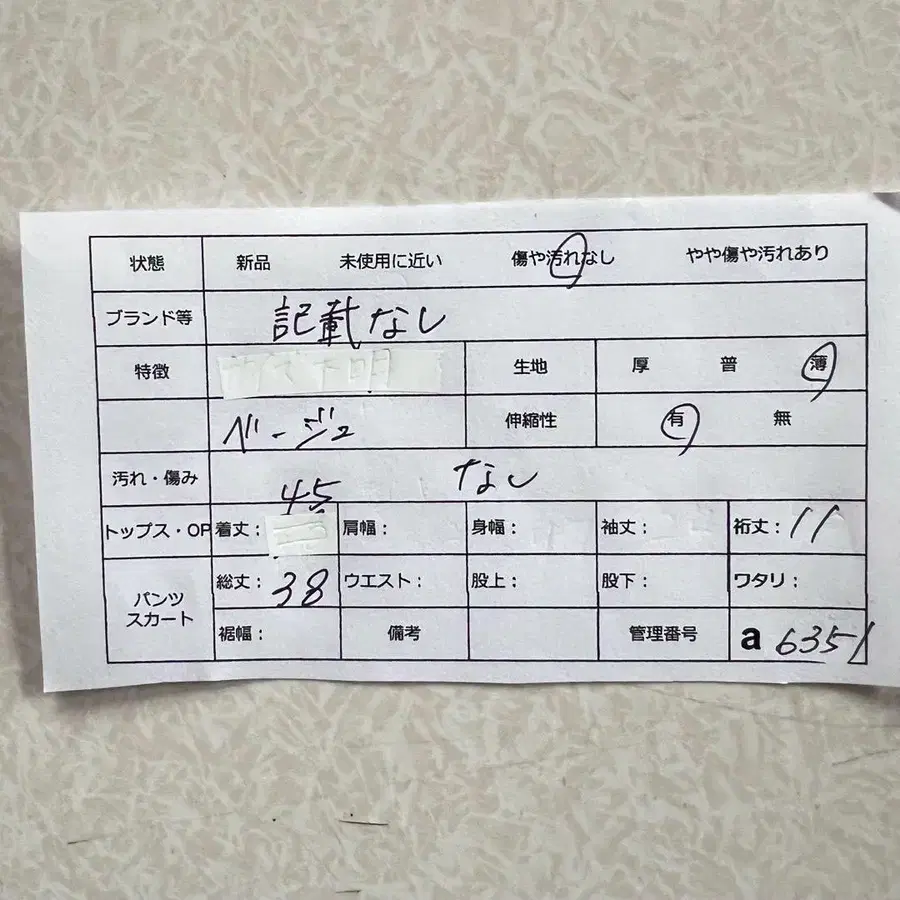 状態 新品 未使用に近い 傷や汚れなし やや傷や汚れあり
ブランド等 記載なし
特徴 生地 厚 普 薄
ベージュ 伸縮性 有 無
汚れ・傷み なし
トップス・OP 着丈: 45 肩幅: 身幅: 袖丈: 裄丈: 11
パンツ スカート 総丈: 38 ウエスト: 股上: 股下: ワタリ:
裾幅: 備考 管理番号 a 6351